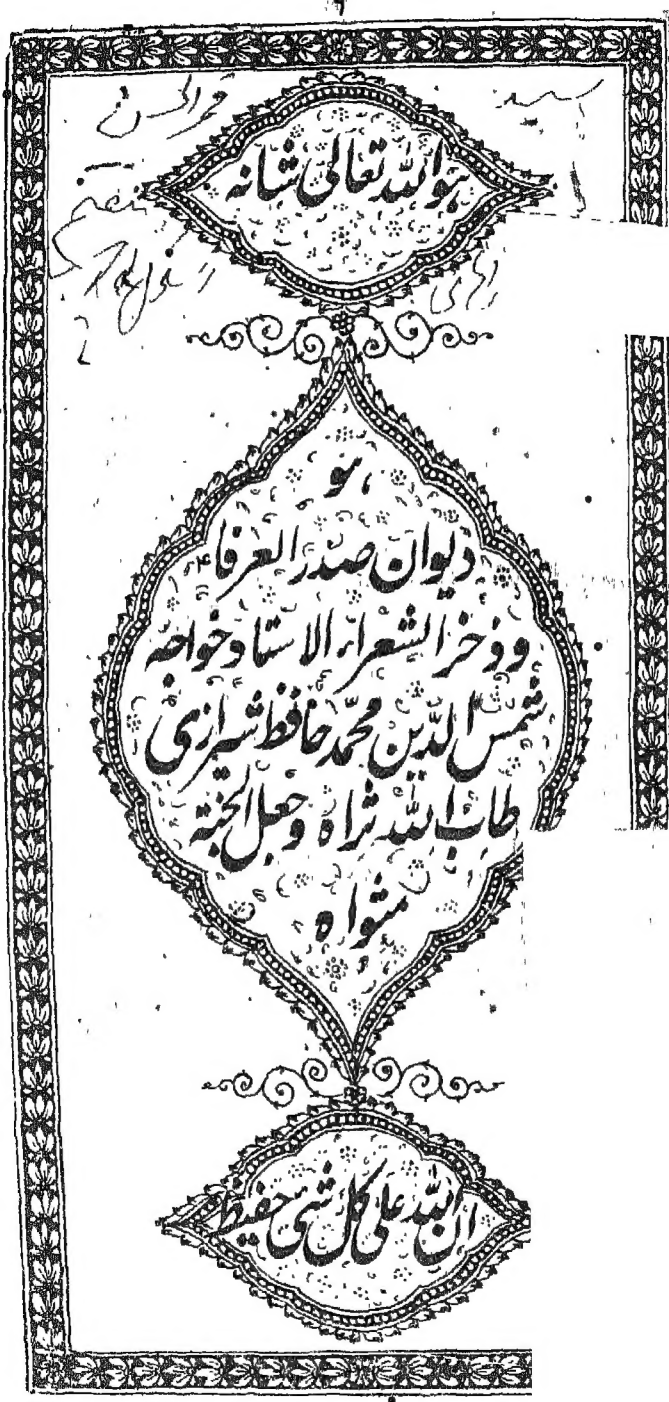 هو الله تعالی شانه
هو
دیوان صدر العرفاء
و ذخر الشعراء الاستاد خواجه
شمس الدین محمد حافظ شیرازی
طاب الله ثراه و جعل الجنة
مثواه
ان الله علی کل شئ حفیظ